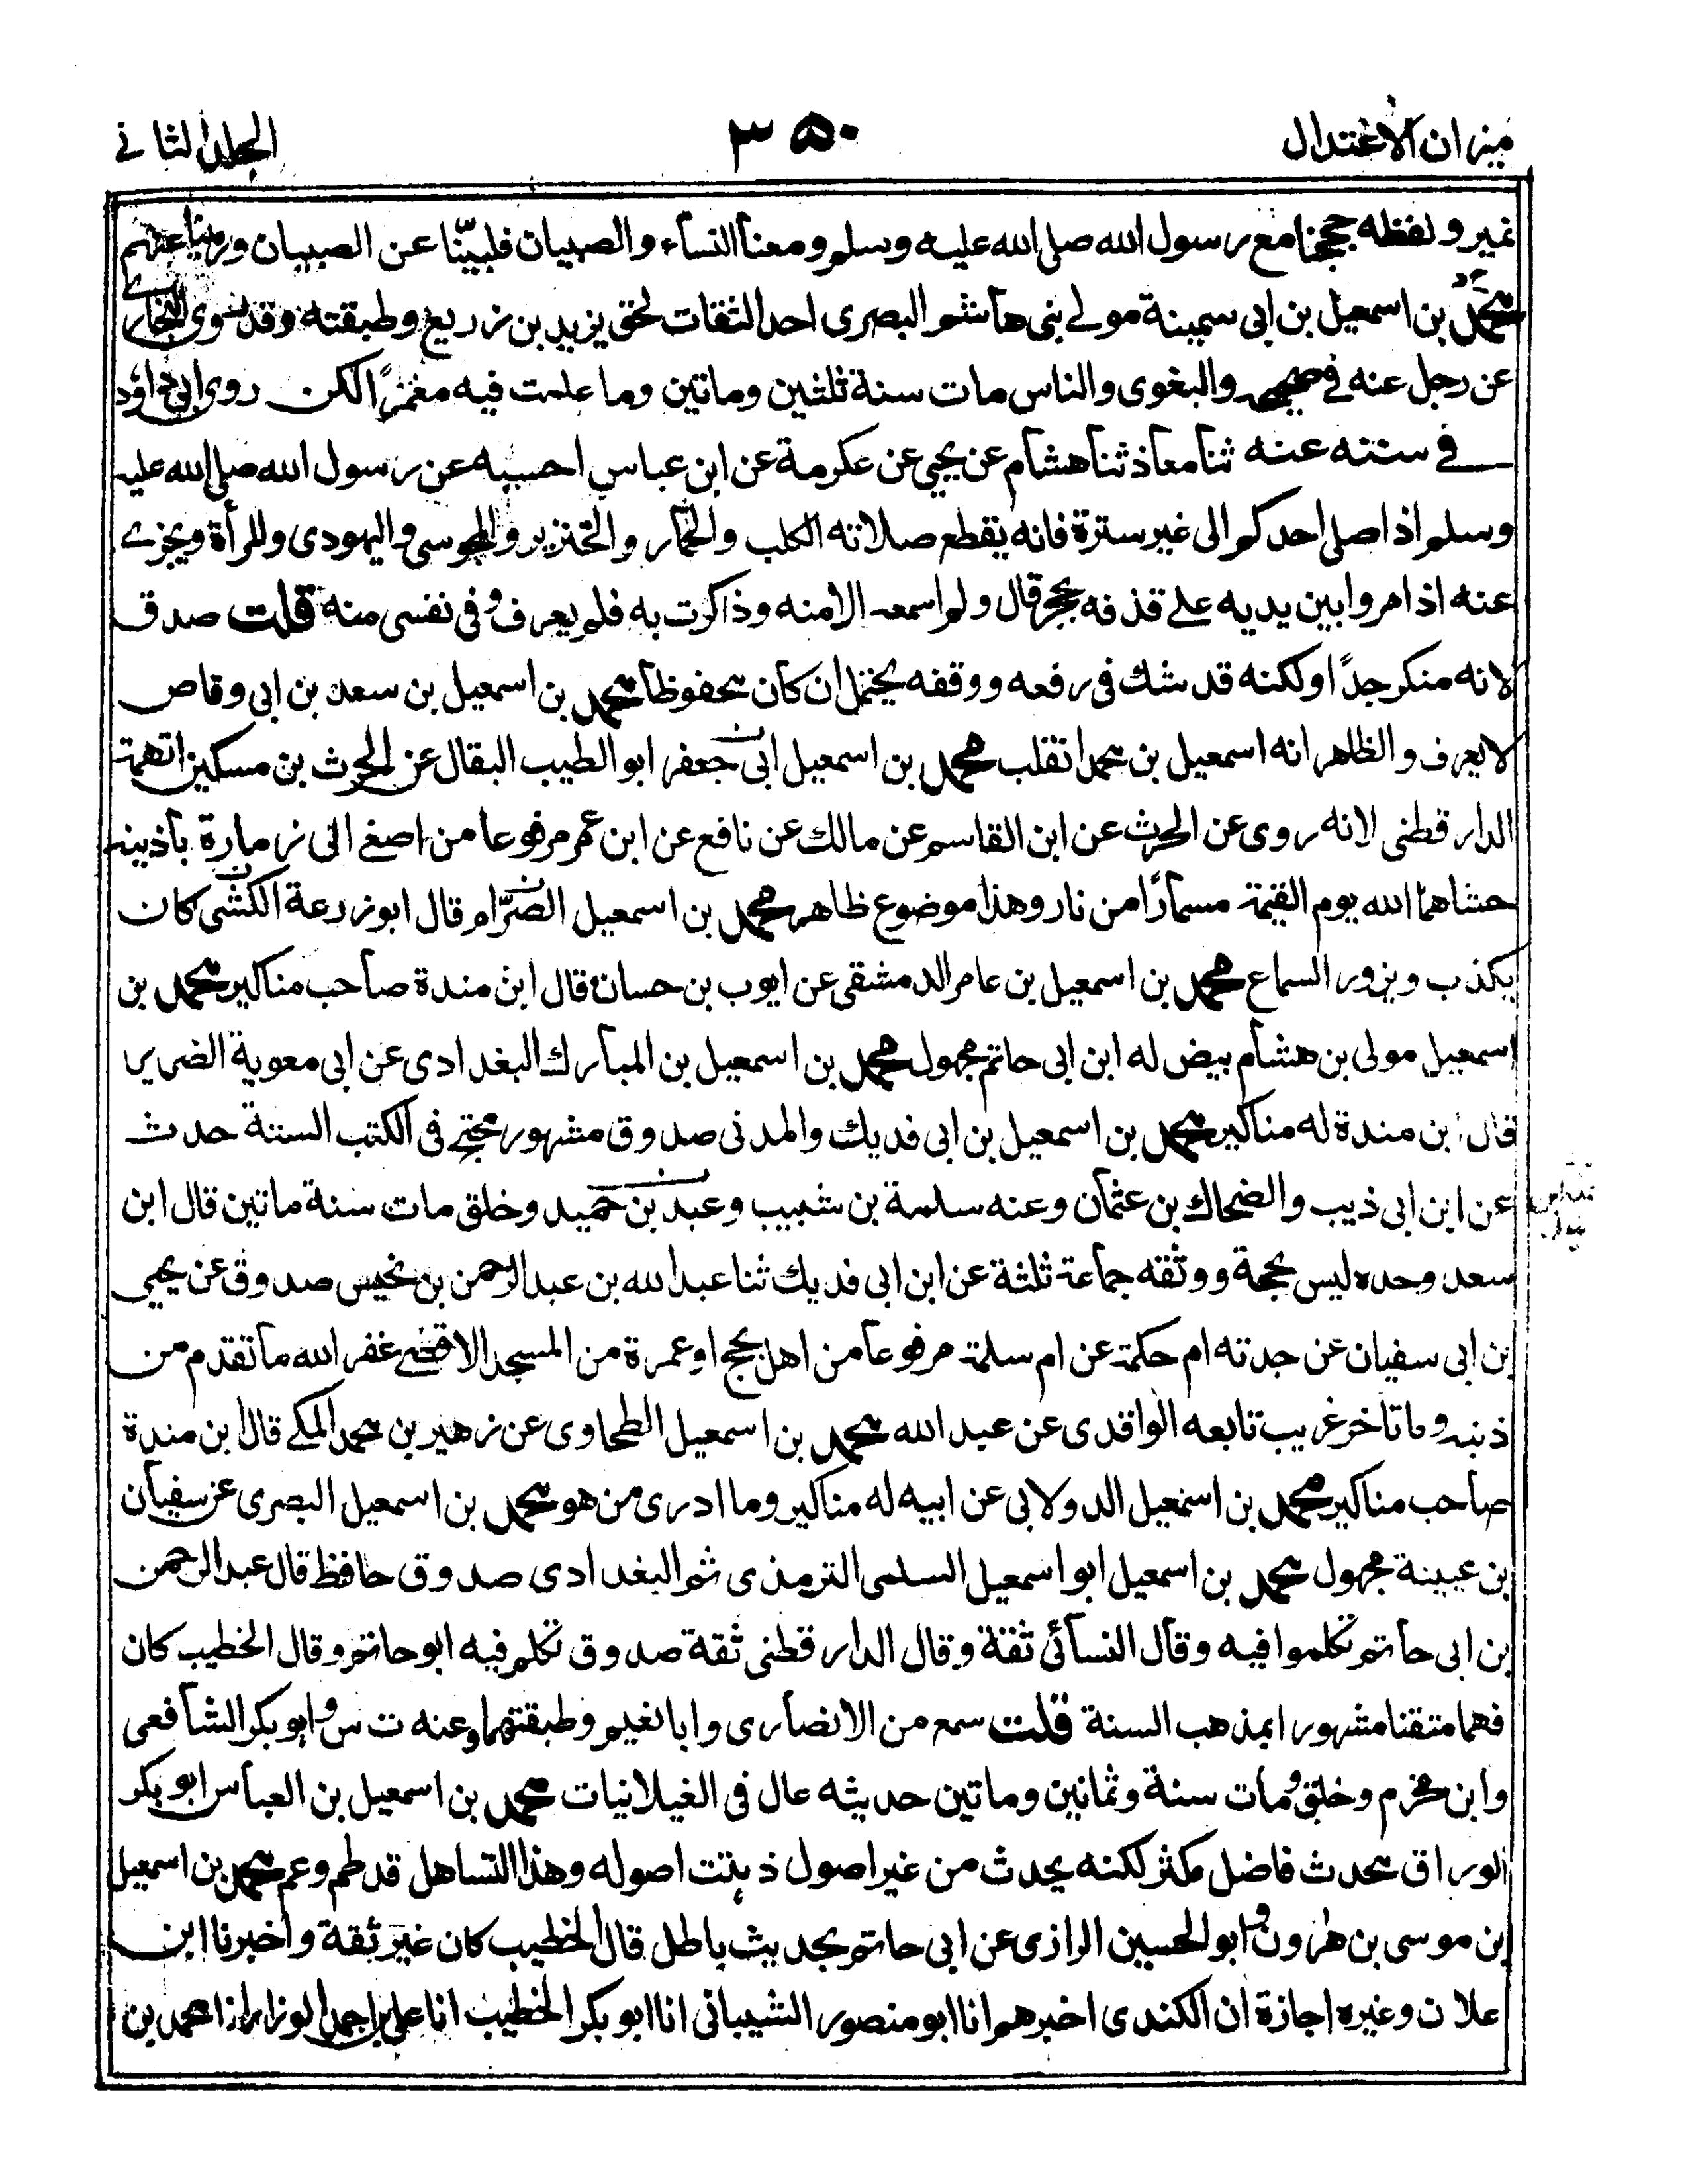 ميزان الاعتدال
٣٥٠
الجلد الثاني
نمير ولفظه حججنا مع رسول الله صلى الله عليه وسلم ومعنا النساء والصبيان فلبينا عن الصبيان ورمينا عنهم
محمد بن اسمعيل بن ابى سمينة مولے بنى هاشم البصرى احد الثقات لحق يزيد بن زريع وطبقته وقد روى البخارے
عن رجل عنه فے صحيحه والبغوى والناس مات سنة ثلثين وماتين وما علمت فيه مغمزًا لكن روى ابى داؤد
فے سننه عنه ثنا معاذ ثنا هشام عن يحيى عن عكرمة عن ابن عباس احسبه عن رسول الله صلى الله عليه
وسلم اذا صلى احدكم الى غير سترة فانه يقطع صلاته الكلب والحمار والخنزير والمجوسى واليهودى والمرأة ويجزے
عنه اذا مروا بين يديه علے قذفه بحجر قال ولم اسمعه الا منه وذاكرت به فلم يعرف وفى نفسى منه قلت صدق
لانه منكر جدًا ولكنه قد شك فى رفعه ووقفه يحتمل ان كان محفوظا محمد بن اسمعيل بن سعد بن ابى وقاص
لا يعرف والظاهر انه اسمعيل بن محمد انقلب محمد بن اسمعيل ابى جعفر ابو الطيب البقال عن الحرث بن مسكين اتهمه
الدارقطنى لانه روى عن الحرث عن ابن القاسم عن مالك عن نافع عن ابن عمر مرفوعا من اصغے الى زمارة باذنيه
حشاهما الله يوم القيمة مسمارًا من نار وهذا موضوع ظاهر محمد بن اسمعيل الضرّام قال ابو زرعة الكشى كان
يكذب ويزور السماع محمد بن اسمعيل بن عامر الدمشقى عن ايوب بن حسان قال ابن مندة صاحب مناكير محمد بن
اسمعيل مولى بن هشام بيض له ابن ابى حاتم مجهول محمد بن اسمعيل بن المبارك البغدادى عن ابى معوية الضرير
قال ابن مندة له مناكير محمد بن اسمعيل بن ابى فديك والمدنى صدوق مشهور محتج فى الكتب الستة حدث
عن ابن ابى ذيب والضحاك بن عثمان وعنه سلمة بن شبيب وعبد بن حميد وخلق مات سنة ماتين قال ابن
سعد وحده ليس بحجة ووثقه جماعة ثلثة عن ابن ابى فديك ثنا عبد الله بن عبد الرحمن بن يخيس صدوق عن يحيى
بن ابى سفيان عن جدته ام حكمة عن ام سلمة مرفوعا من اهل بحج او عمرة من المسجد الاقصے غفر الله ما تقدم من
ذنبه وما تاخر غريب تابعه الواقدى عن عبد الله محمد بن اسمعيل الطحاوى عن زهير بن محمد المكے قال بن مندة
صاحب مناكير محمد بن اسمعيل الدولابى عن ابيه له مناكير وما ادرى من هو محمد بن اسمعيل البصرى عن سفيان
بن عيينة مجهول محمد بن اسمعيل ابو اسمعيل السلمى الترمذى ثم البغدادى صدوق حافظ قال عبد الرحمن
بن ابى حاتم تكلموا فيه وقال النسائى ثقة وقال الدارقطنى ثقة صدوق تكلم فيه ابو حاتم وقال الخطيب كان
فهما متقنا مشهورا بمذهب السنة قلت سمع من الانصارى وابا نعيم وطبقتهما وعنه ت س وابو بكر الشافعى
وابن مخرم وخلق ومات سنة وثمانين وماتين حديثه عال فى الغيلانيات محمد بن اسمعيل بن العباس ابو بكر
الوراق محدث فاضل مكثر لكنه يحدث من غير اصول ذهبت اصوله وهذا التساهل قد طم وعم محمد بن اسمعيل
بن موسى بن هرون ابو الحسين الرازى عن ابى حاتم بحديث باطل قال الخطيب كان غير ثقة واخبرنا ابن
علان وغيره اجازة ان الكندى اخبرهم انا ابو منصور الشيبانى انا ابو بكر الخطيب انا على بن احمد الوزار انا محمد بن